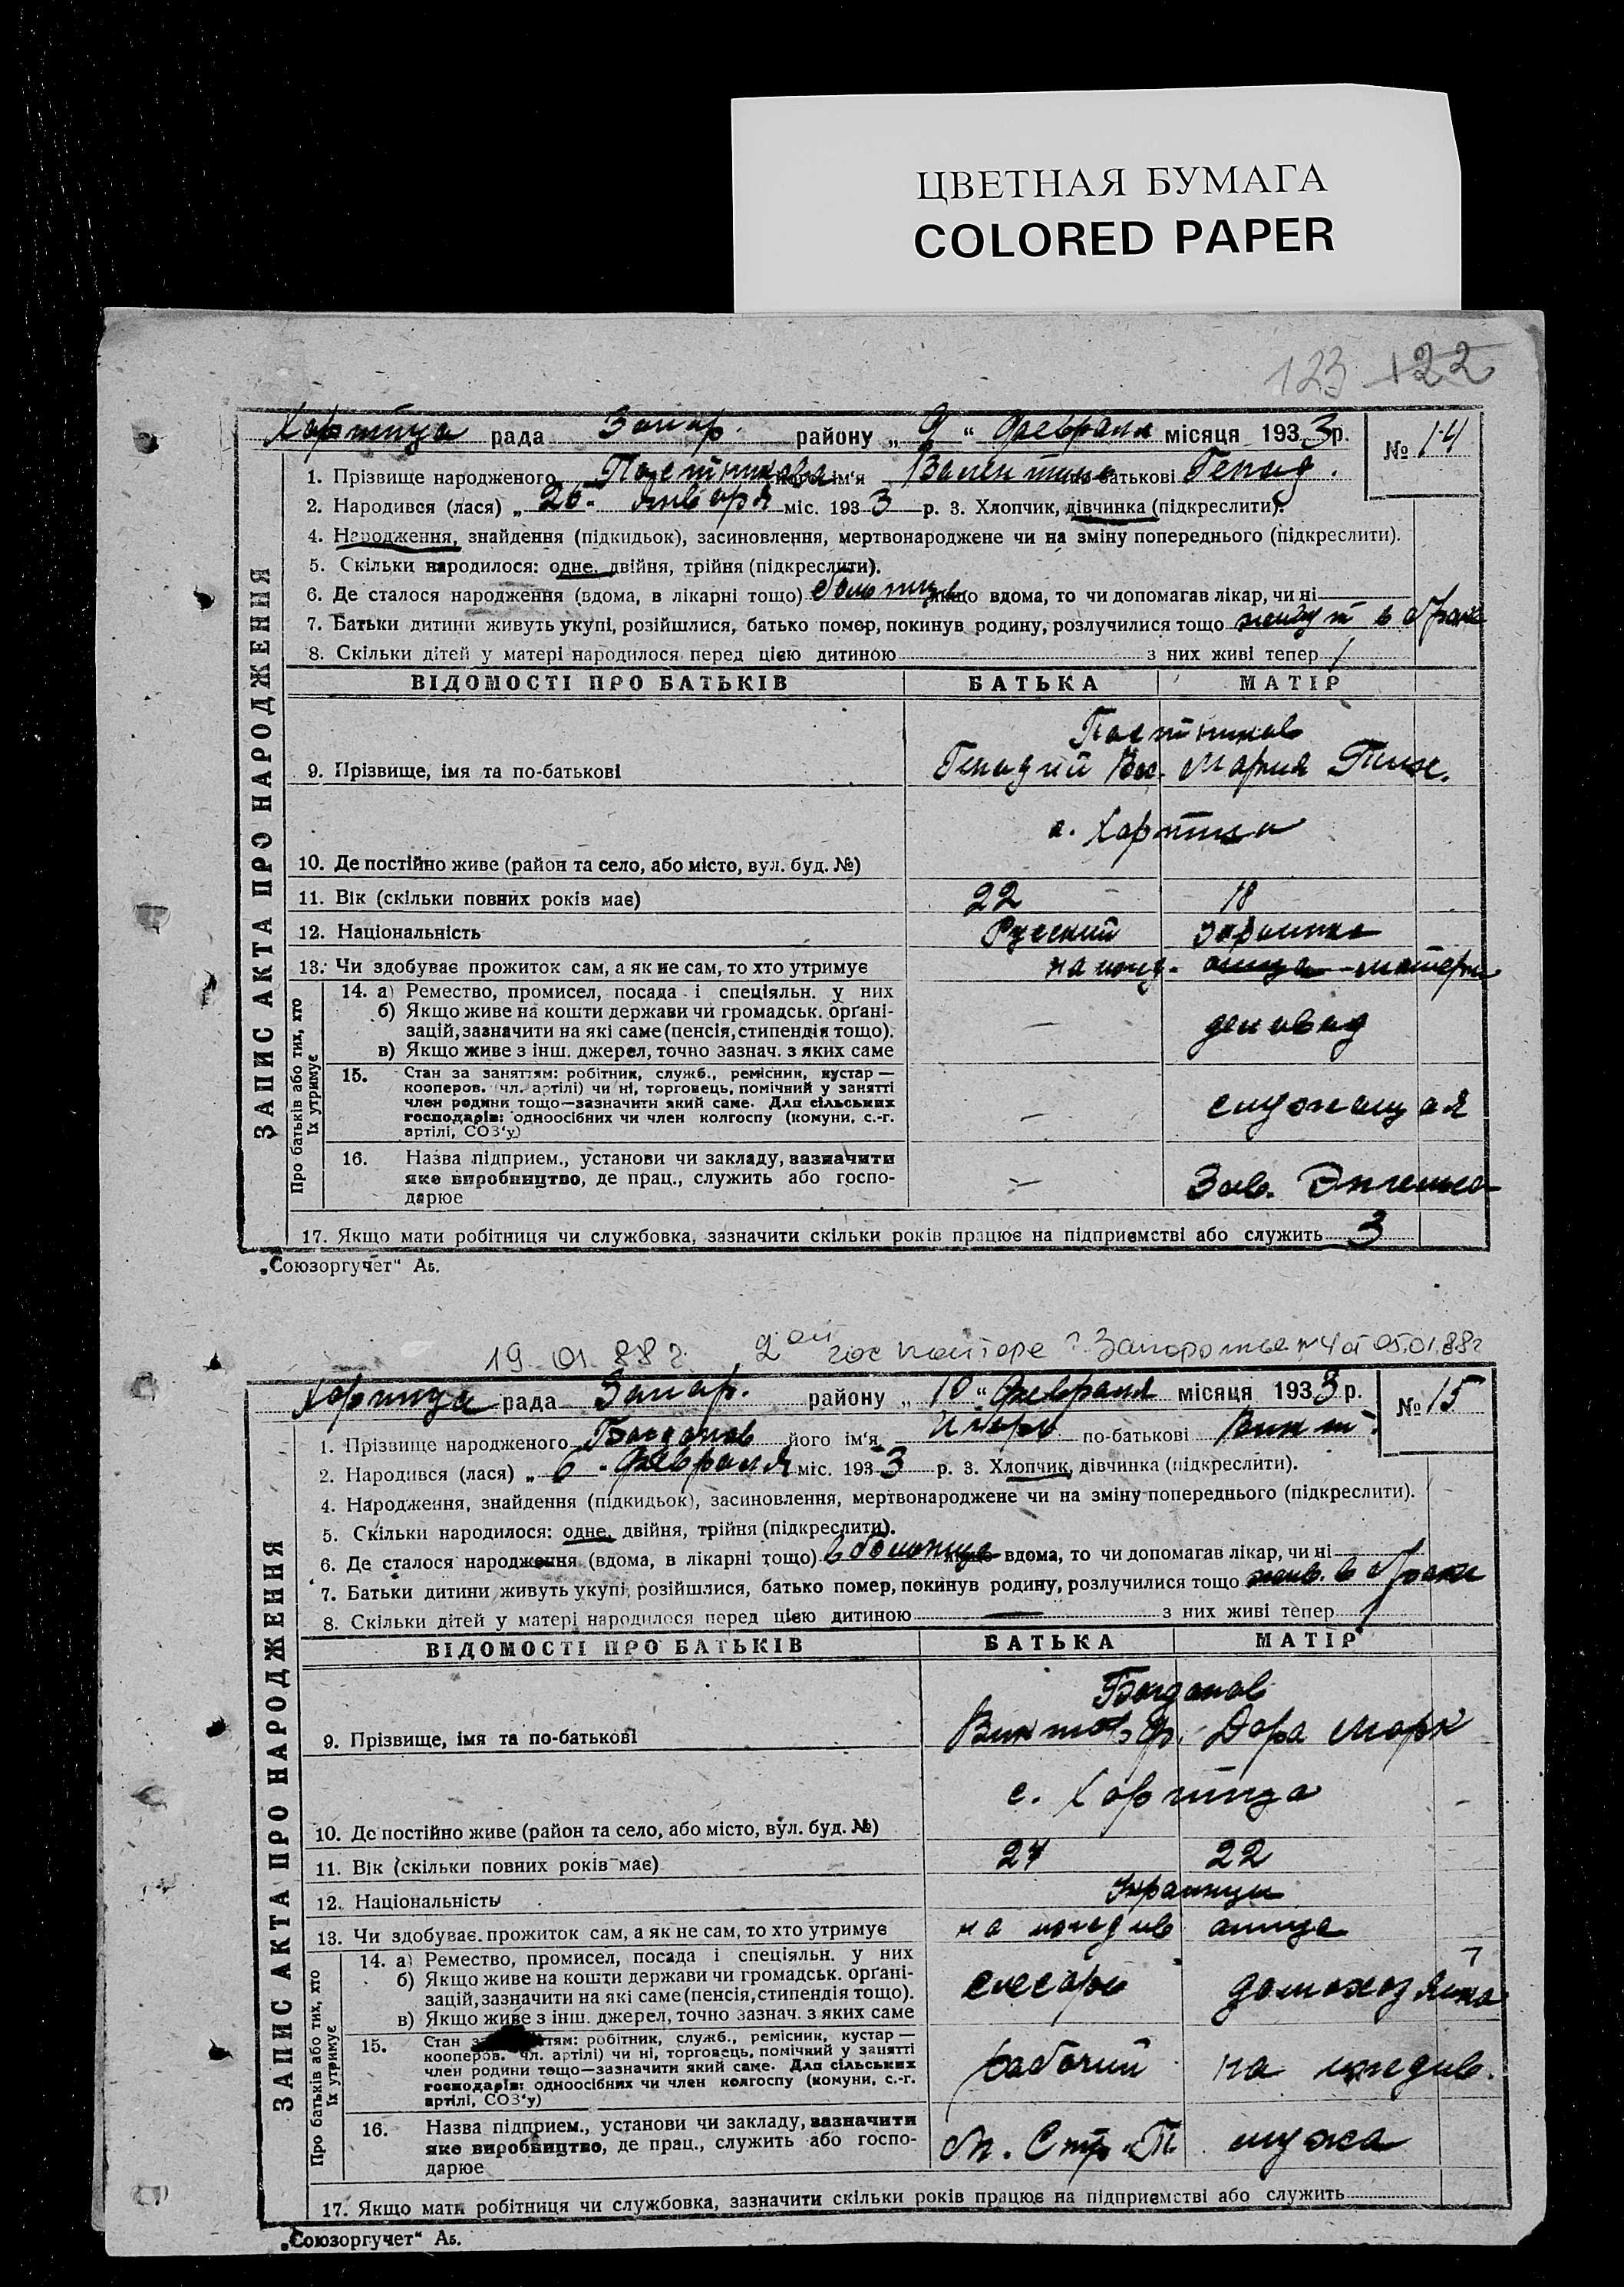 ЦВЕТНАЯ БУМАГА
COLORED PAPER
123 122
Хортица рада Запор. району „ 9 “ февраля місяця 1933 р. № 14
ЗАПИС АКТА ПРО НАРОДЖЕННЯ
1. Прізвище народженого Постникова його ім'я Валентина по-батькові Генад.
2. Народився (лася) „ 26 “ января міс. 1933 р. 3. Хлопчик, дівчинка (підкреслити).
4. Народження, знайдення (підкидьок), засиновлення, мертвонароджене чи на зміну попереднього (підкреслити).
5. Скільки народилося: одне, двійня, трійня (підкреслити).
6. Де сталося народження (вдома, в лікарні тощо) больница якщо вдома, то чи допомагав лікар, чи ні
7. Батьки дитини живуть укупі, розійшлися, батько помер, покинув родину, розлучилися тощо живут в браке
8. Скільки дітей у матері народилося перед цією дитиною з них живі тепер 1
ВІДОМОСТІ ПРО БАТЬКІВ БАТЬКА МАТІР
Постников
9. Прізвище, імя та по-батькові Генадий Вас. Мария Тим.
с. Хортица
10. Де постійно живе (район та село, або місто, вул. буд. №)
11. Вік (скільки повних років має) 22 18
12. Національність Русский украинка
13. Чи здобуває прожиток сам, а як не сам, то хто утримує на ижд. отца матери
Про батьків або тих, хто їх утримує
14. а) Ремество, промисел, посада і спеціяльн. у них
б) Якщо живе на кошти держави чи громадськ. організацій, зазначити на які саме (пенсія, стипендія тощо).
в) Якщо живе з інш. джерел, точно зазнач. з яких саме
— деловод
15. Стан за заняттям: робітник, служб., ремісник, кустар —
кооперов. (чл. артілі) чи ні, торговець, помічний у занятті
член родини тощо—зазначити який саме. Для сільських
господарів: одноосібних чи член колгоспу (комуни, с.-г.
артілі, СОЗ'у)
— служащая
16. Назва підприєм., установи чи закладу, зазначити
яке виробництво, де прац., служить або госпо-
дарює
— Зав. Энгельса
17. Якщо мати робітниця чи службовка, зазначити скільки років працює на підприємстві або служить 3
„Союзоргучет“ Аб.
19.01.88 г. 2ой гос нотаре г. Запорожье № 4 от 05.01.88 г
Хортица рада Запор. району „ 10 “ февраля місяця 1933 р. № 15
ЗАПИС АКТА ПРО НАРОДЖЕННЯ
1. Прізвище народженого Богданов його ім'я Игорь по-батькові Викт.
2. Народився (лася) „ 6 “ февраля міс. 1933 р. 3. Хлопчик, дівчинка (підкреслити).
4. Народження, знайдення (підкидьок), засиновлення, мертвонароджене чи на зміну попереднього (підкреслити).
5. Скільки народилося: одне, двійня, трійня (підкреслити).
6. Де сталося народження (вдома, в лікарні тощо) в больнице якщо вдома, то чи допомагав лікар, чи ні
7. Батьки дитини живуть укупі, розійшлися, батько помер, покинув родину, розлучилися тощо жив. в браке
8. Скільки дітей у матері народилося перед цією дитиною — з них живі тепер 1
ВІДОМОСТІ ПРО БАТЬКІВ БАТЬКА МАТІР
Богданов
9. Прізвище, імя та по-батькові Виктор Ф. Дора Марк
с. Хортица
10. Де постійно живе (район та село, або місто, вул. буд. №)
11. Вік (скільки повних років має) 27 22
12. Національність Украинцы
13. Чи здобуває прожиток сам, а як не сам, то хто утримує на иждив отца
Про батьків або тих, хто їх утримує
14. а) Ремество, промисел, посада і спеціяльн. у них
б) Якщо живе на кошти держави чи громадськ. організацій, зазначити на які саме (пенсія, стипендія тощо).
в) Якщо живе з інш. джерел, точно зазнач. з яких саме
слесарь домохозяйка
15. Стан за заняттям: робітник, служб., ремісник, кустар —
кооперов. чл. артілі) чи ні, торговець, помічний у занятті
член родини тощо—зазначити який саме. Для сільських
господарів: одноосібних чи член колгоспу (комуни, с.-г.
артілі, СОЗ'у)
рабочий на иждив.
16. Назва підприєм., установи чи закладу, зазначити
яке виробництво, де прац., служить або госпо-
дарює
мужа
17. Якщо мати робітниця чи службовка, зазначити скільки років працює на підприємстві або служить
„Союзоргучет“ Аб.